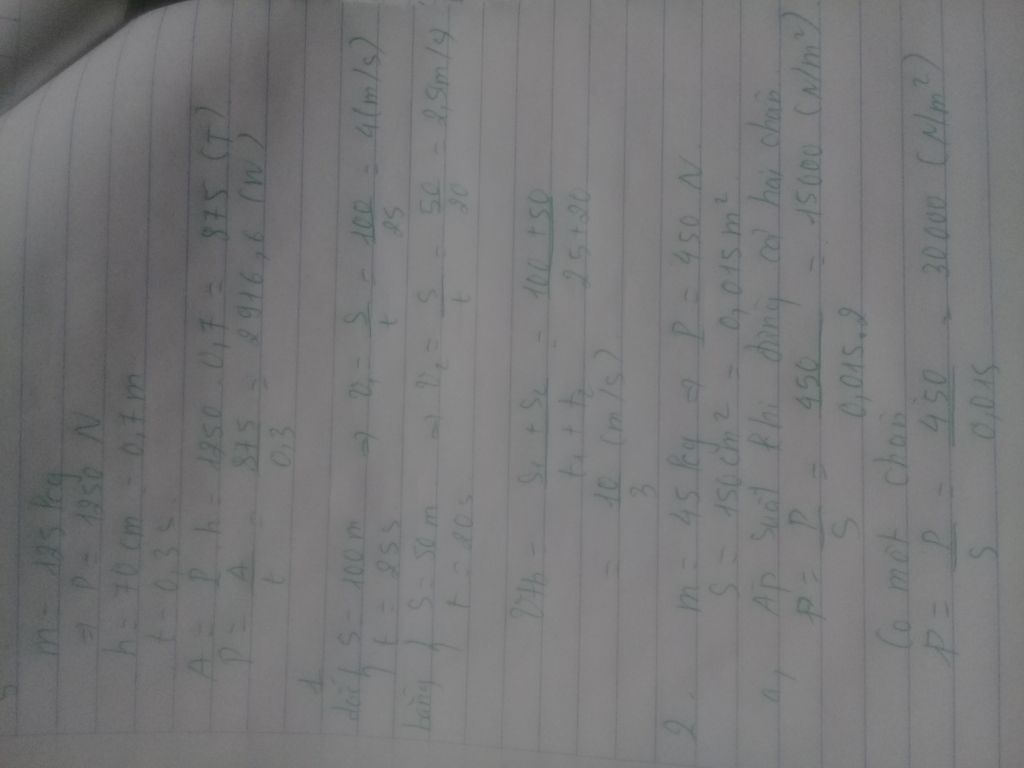 m = 125 kg
⇒ P = 1250 N
h = 70 cm = 0,7 m
t = 0,3 s
A = P.h = 1250.0,7 = 875 (J)
P = A/t = 875/0,3 = 2916,6 (W)
1
dốc { S = 100 m
t = 25 s ⇒ v₁ = S/t = 100/25 = 4 (m/s)
bằng { S = 50 m
t = 20 s ⇒ v₂ = S/t = 50/20 = 2,5 m/s
vtb = S₁ + S₂ / t₁ + t₂ = 100 + 50 / 25 + 20
= 10/3 (m/s)
2, m = 45 kg ⇒ P = 450 N
S = 150 cm² = 0,015 m²
a, Áp suất khi đứng cả hai chân
P = P/S = 450/0,015.2 = 15000 (N/m²)
Co một chân
P = P/S = 450/0,015 = 30000 (N/m²)